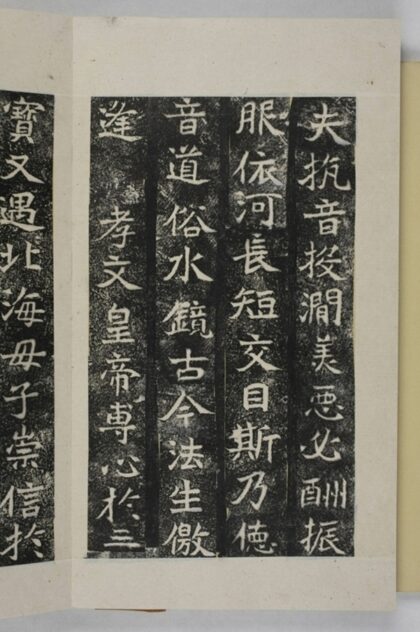 夫抗音投澗美惡必酬振
服依河長短交目斯乃德
音道俗水鏡古今法生儌
逢　孝文皇帝專心於三
寶又遇北海母子崇信於